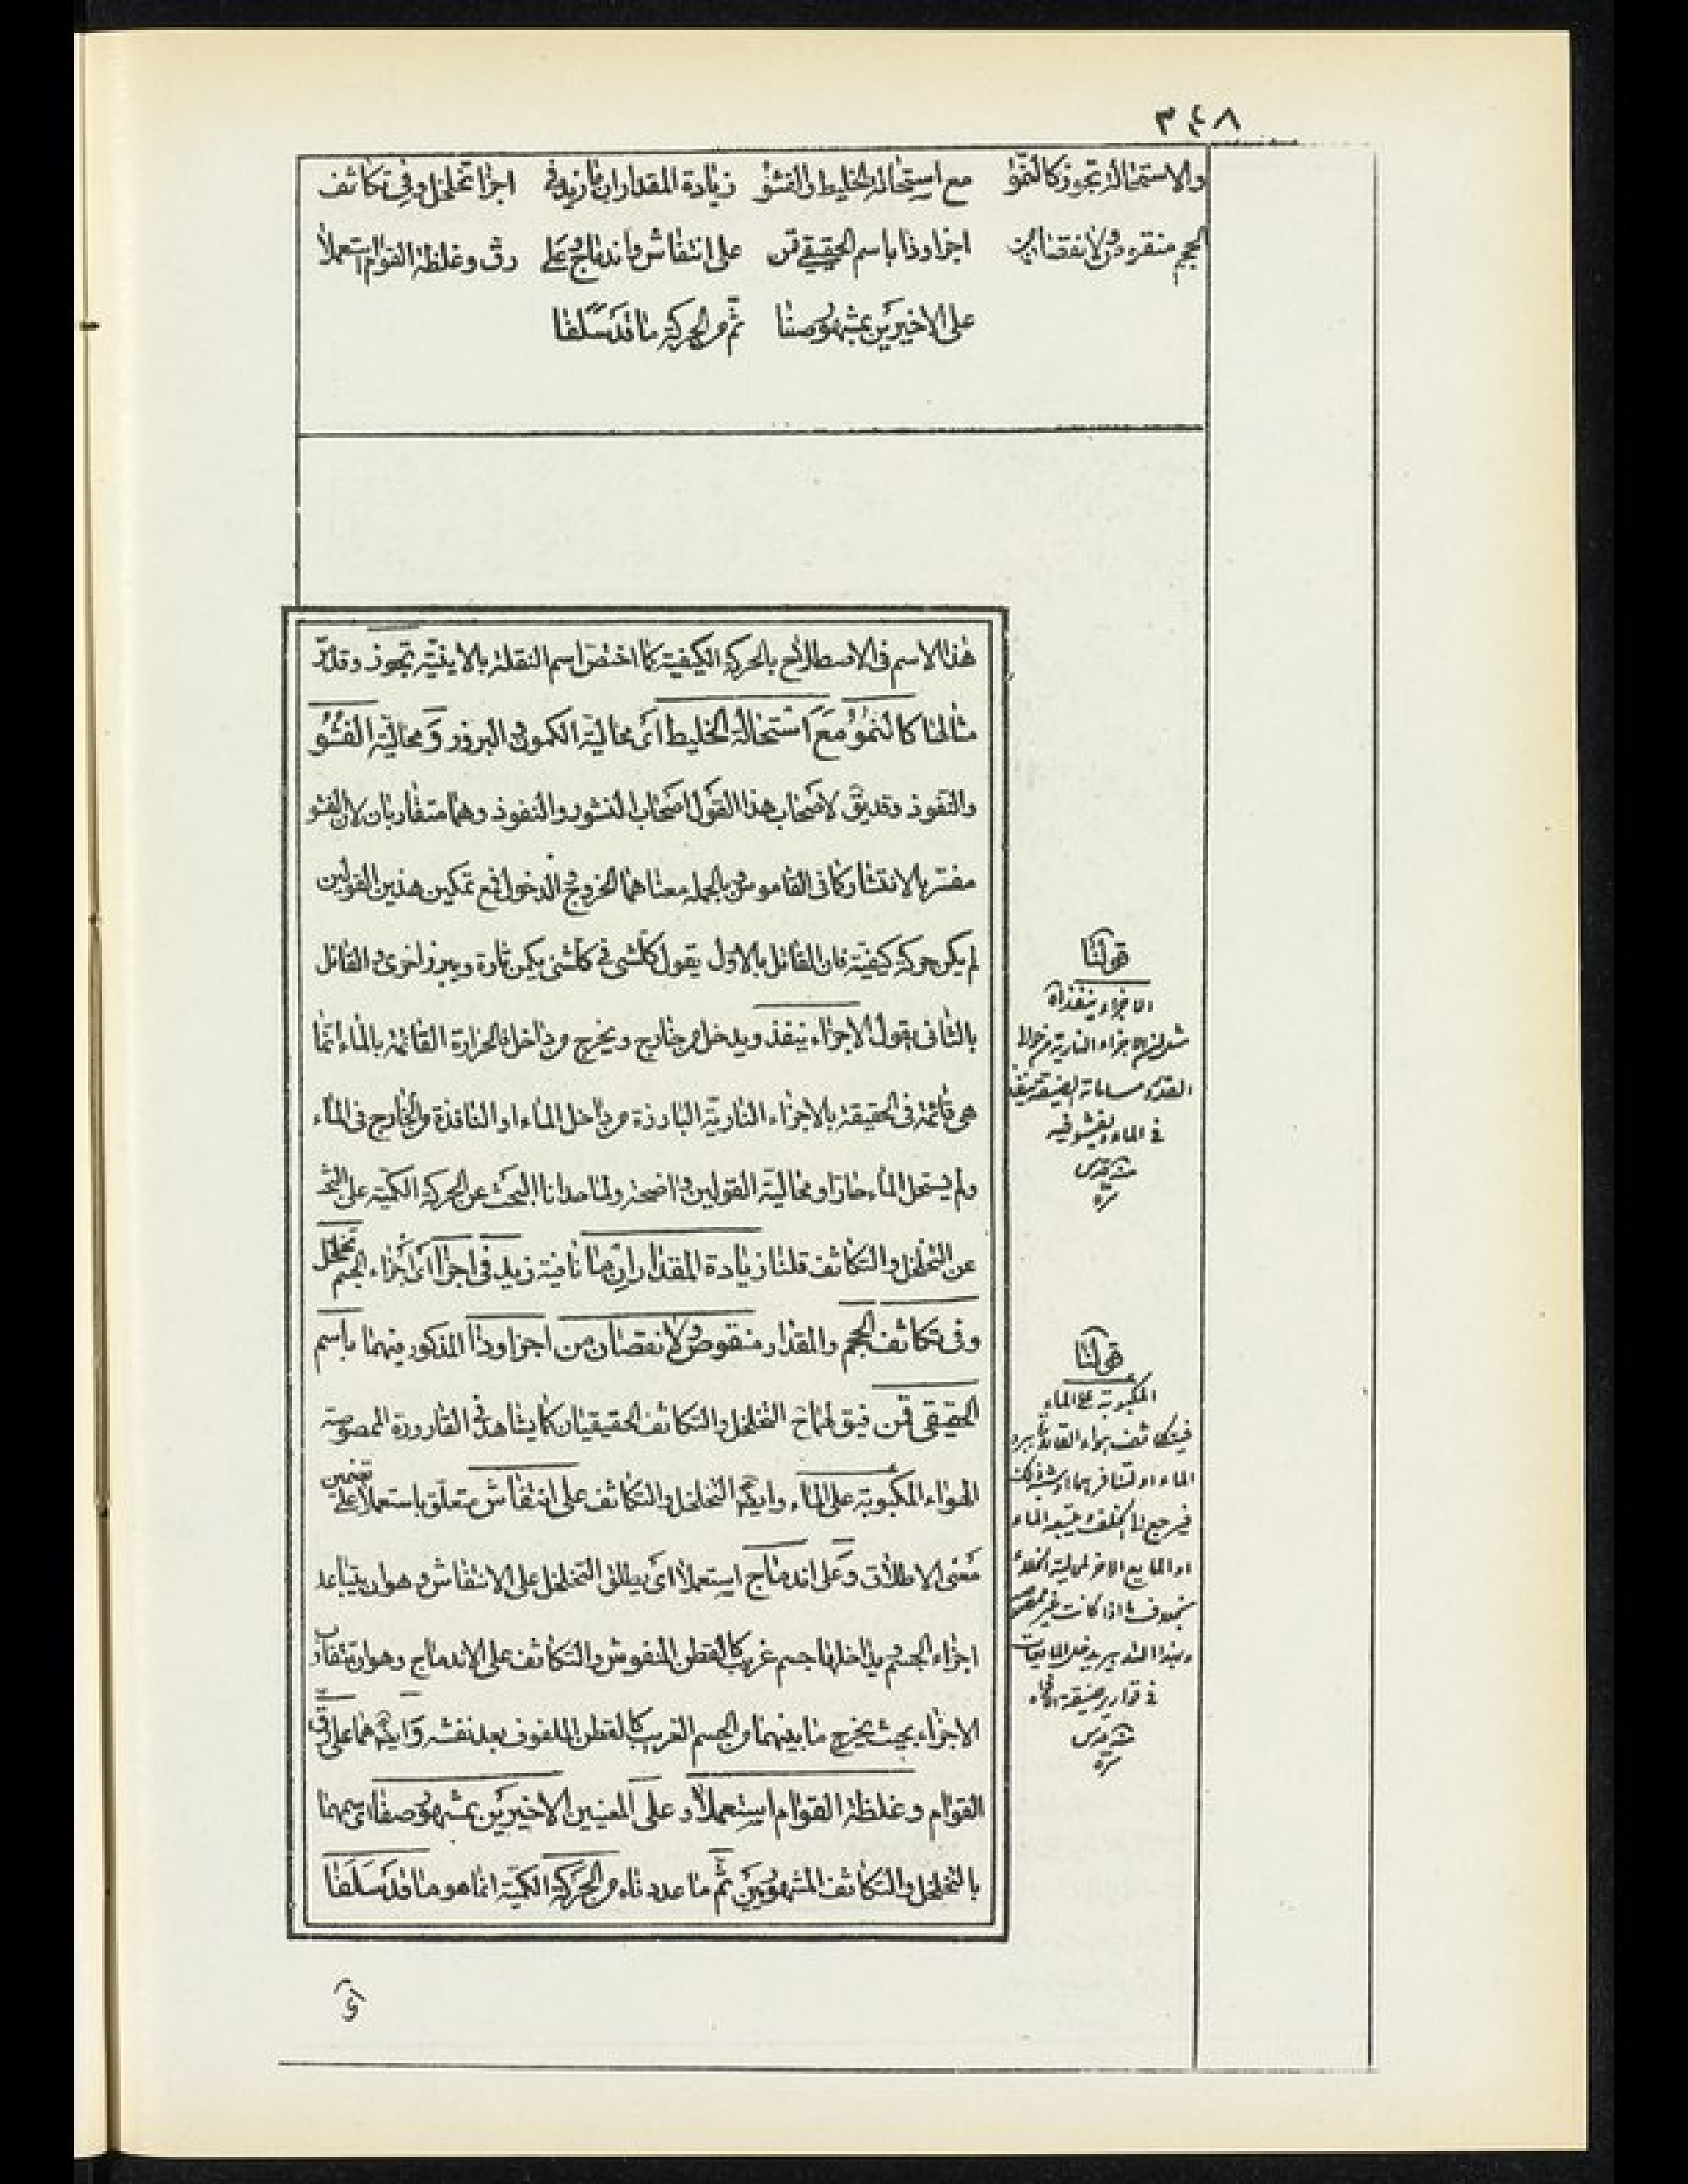 ٣٤٨
والاستحالة تجوز كالنمو مع استحالة الخليط والفشو زيادة المقدار ان ما زيد في اجزا تخلخل وفي تكاثف
الحجم منقوص ولا نقصان من اجزا وذا باسم الحقيقي قمن على انتفاش واندماج على رقة وغلظة القوام استعملا
على الاخيرين بمشهور صفا ثم من الحركة ما قد سلفا
هذا الاسم فى الاصطلاح بالحركة الكيفية كما اختص اسم النقلة بالاينية تجوز وقد مر
مثالها كالنمو مع استحالة الخليط اى محالية الكمون والبروز و محالية الفشو
والنفوذ وقد يق لاصحاب هذا القول اصحاب النشور والنفوذ وهما متقاربان لان الفشو
مفسر بالانتشار كما فى القاموس وبالجملة معناهما الخروج والدخول فمع تمكين هذين القولين
لم يكن حركة كيفية فان القائل بالاول يقول كل شى فى كل شى يكمن تارة ويبرز اخرى والقائل
بالثانى يقول الاجزاء ينفذ ويدخل من خارج ويخرج من داخل فالحرارة القائمة بالماء انما
هى قائمة فى الحقيقة بالاجزاء النارية البارزة من داخل الماء او النافذة من الخارج فى الماء
ولم يستحل الماء حارا ومحالية القولين واضحة ولما حدانا البحث عن الحركة الكمية على البحث
عن التخلخل والتكاثف قلنا زيادة المقدار ان ما نافية زيد فى اجزا اى اجزاء الجسم تخلخل
وفى تكاثف الحجم والمقدار منقوص ولا نقصان من اجزا وذا المذكور فيهما باسم
الحقيقى قمن فيق لهما ح التخلخل والتكاثف الحقيقيان كما يشاهد فى القارورة الممصوصة
الهواء المكبوبة على الماء وايضا التخلخل والتكاثف على انتفاش متعلق باستعملا على تضمين
معنى الاطلاق وعلى اندماج استعملا اى يطلق التخلخل على الانتفاش وهو ان يتباعد
اجزاء الجسم ويداخلها جسم غريب كالقطن المنفوش والتكاثف على الاندماج وهو ان يتقارب
الاجزاء بحيث يخرج ما بينهما من الجسم الغريب كالقطن الملفوف بعد نفشه وايضا هما على رقة
القوام وغلظة القوام استعملا و على المعنيين الاخيرين بمشهور صفا اى سمهما
بالتخلخل والتكاثف المشهورين ثم ما عددناه من الحركة الكمية انما هو ما قد سلفا
اى
قولنا
الاجزاء ينفذ آه
الاجزاء النارية من حوالى
القدر مسامات
فى الماء ويفشو فيه
منه قدس
سره
قولنا
المكبوبة على الماء
فيتكاثف هواء القارورة ببرد
الماء او
فيرجع الى ويتبعه الماء
او المايع الاخر لمحالية الخلاء
بخلاف ما اذا كانت غير ممصوصة
وبهذا التدبير يدخل المايعات
فى قوارير ضيقة الافواه
منه قدس
سره